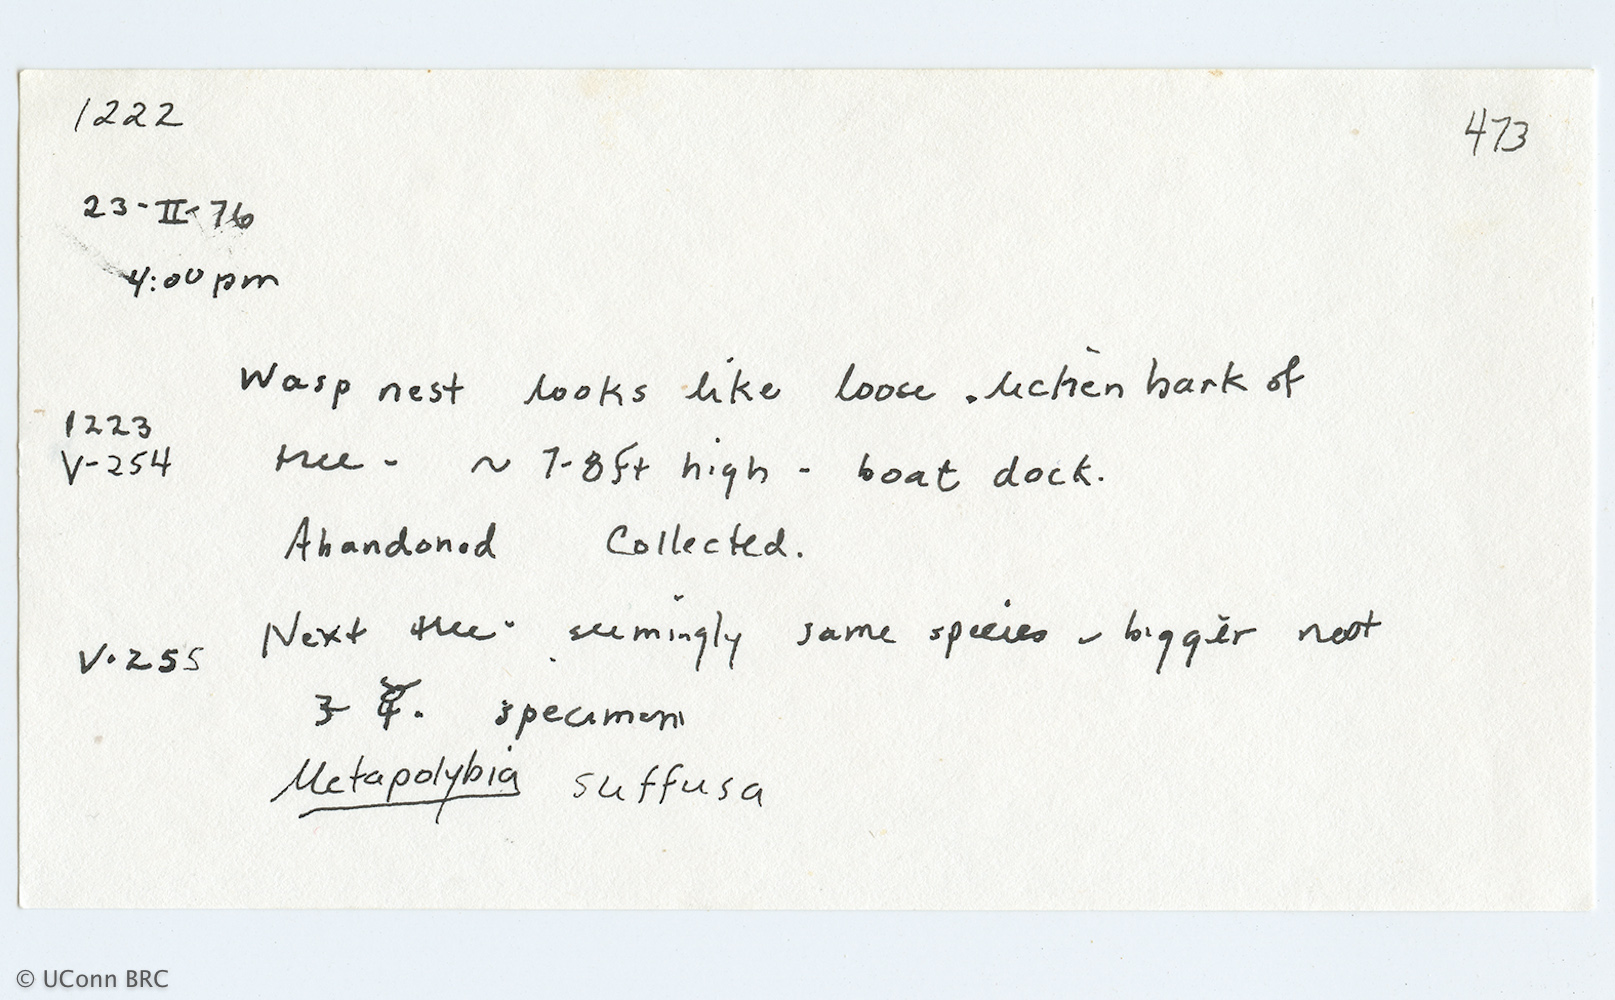 1222
473
23-II-76
4:00 pm
Wasp nest looks like loose lichen bark of
1223
V-254 tree - ~ 7-8 ft high - boat dock.
Abandoned Collected.
V-255 Next tree - seemingly same species - bigger nest
3 ☿. specimens
Metapolybia suffusa
© UConn BRC